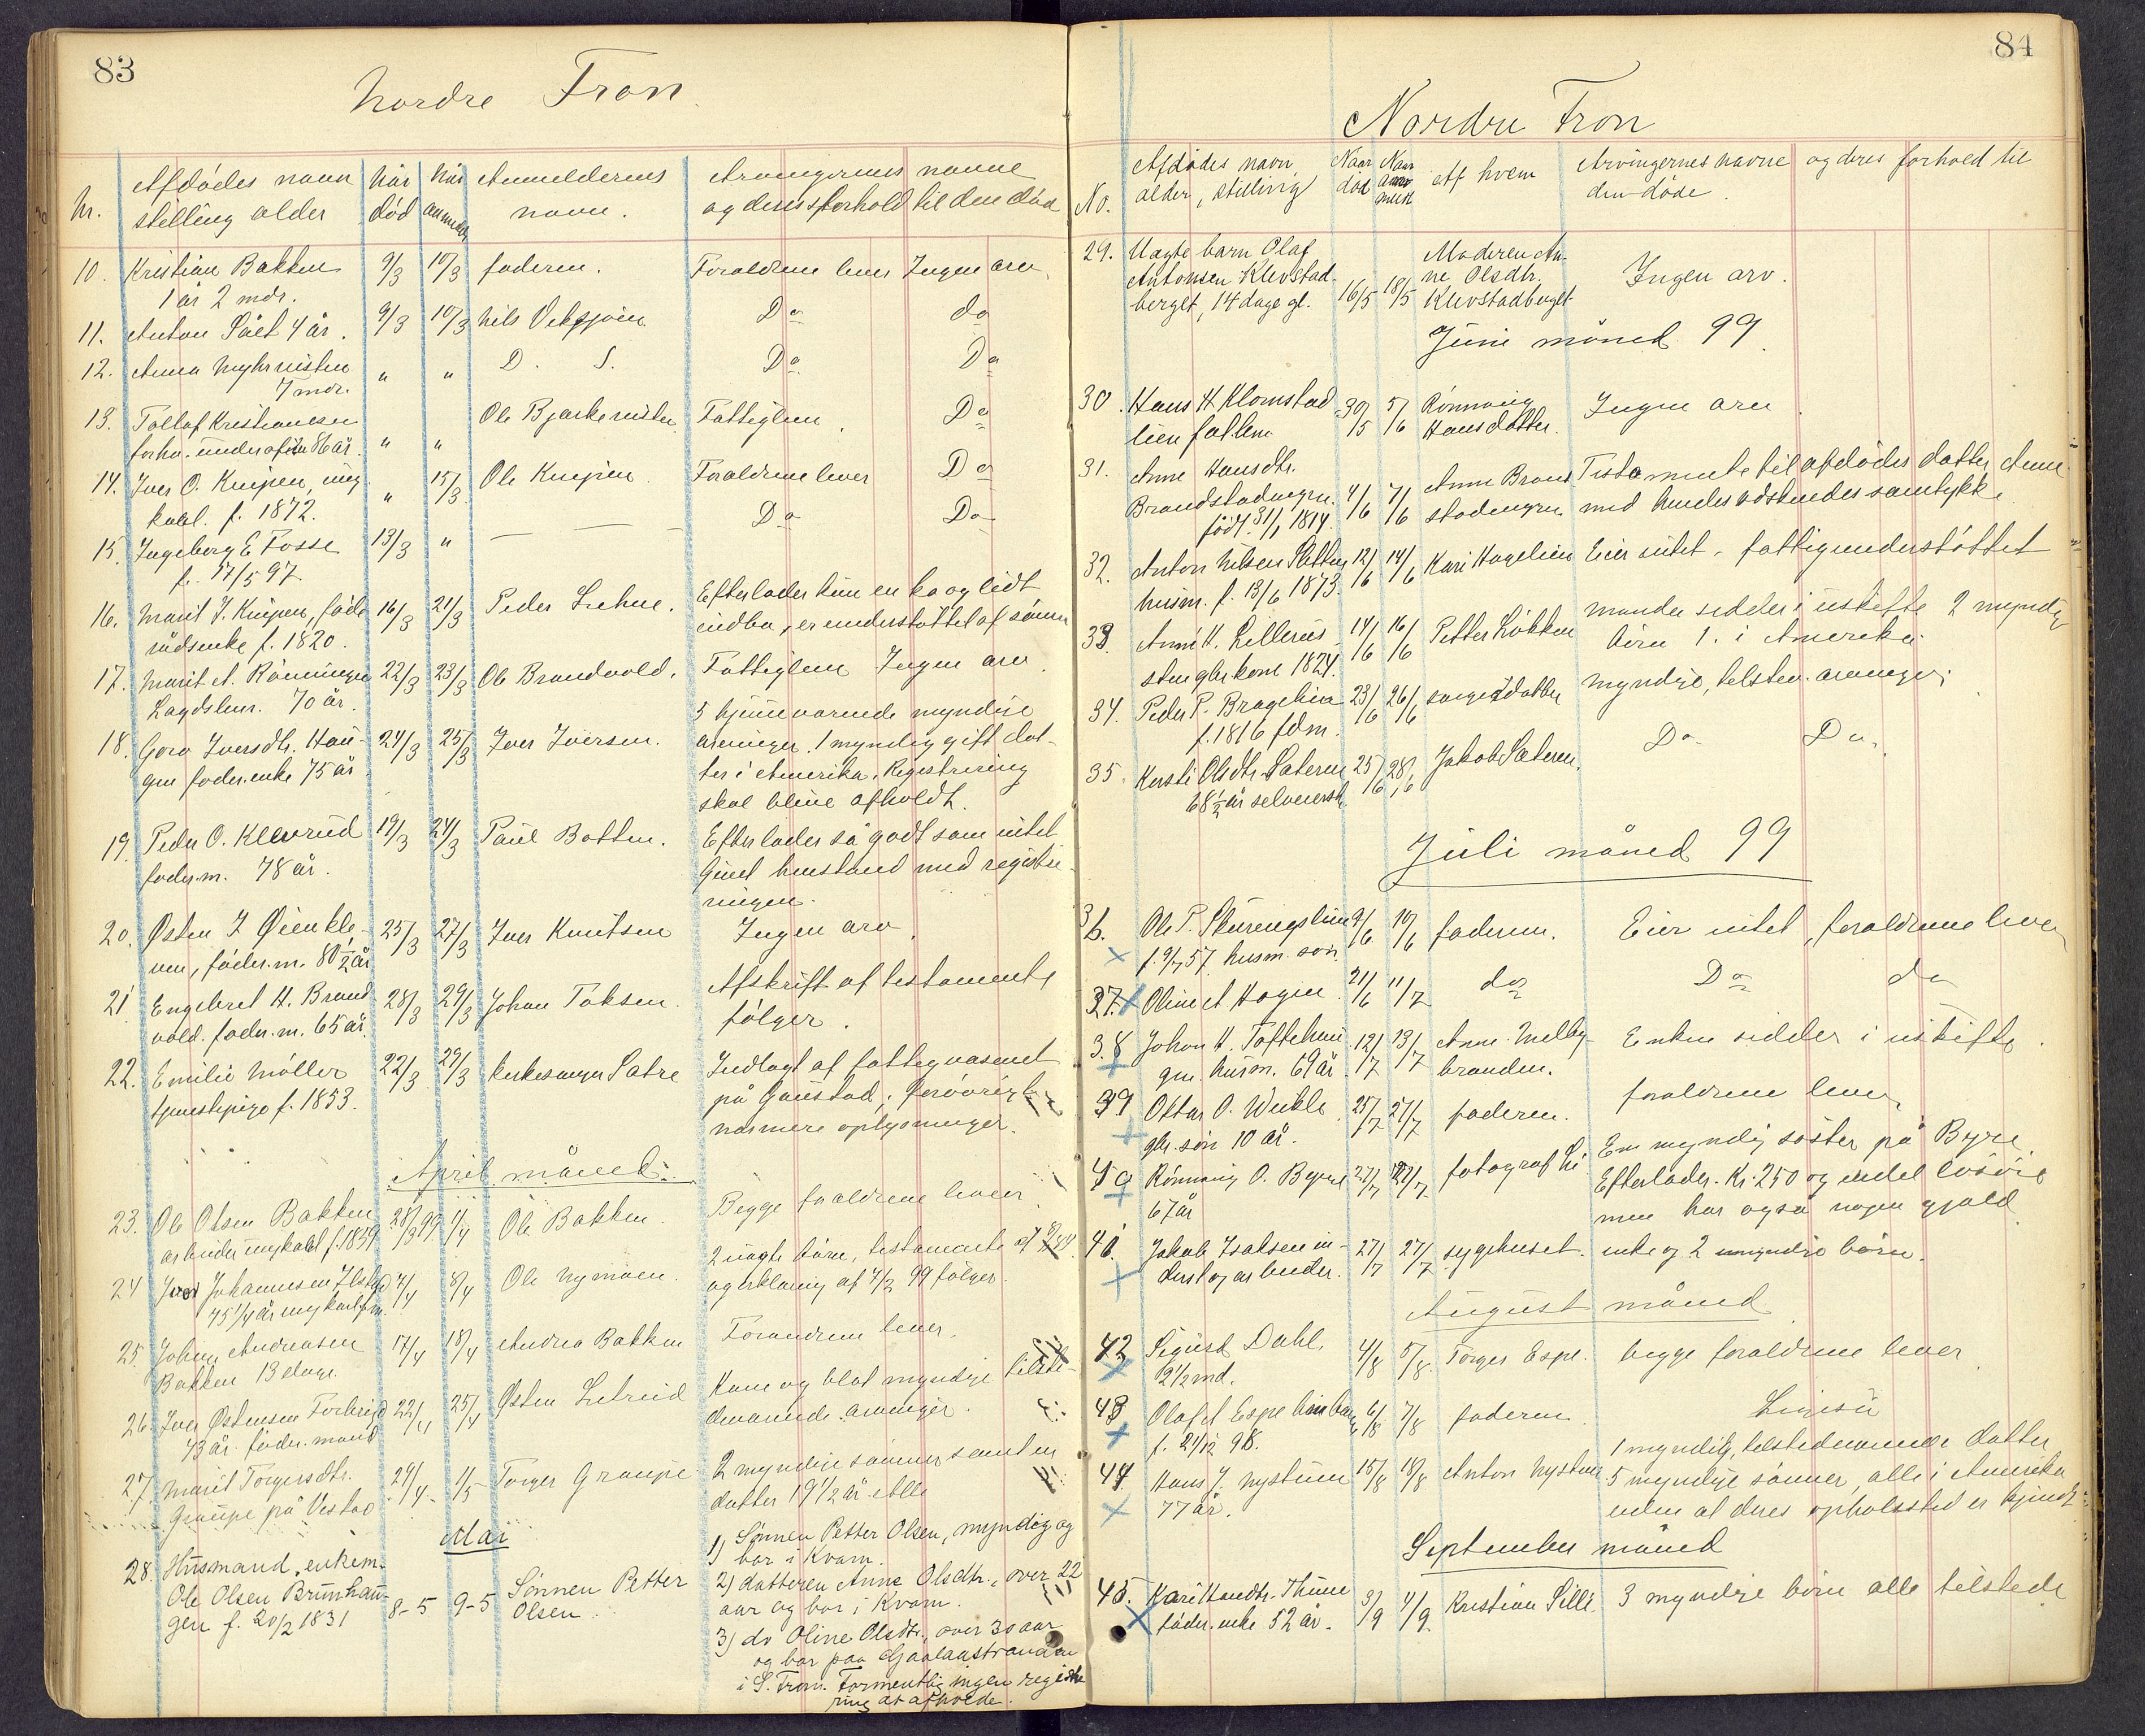 83
Nordre Fron.
Nr.
Afdødes navn
stilling alder
Når
død
Når
anmeldt
Anmelderens
navn.
Arvingernes navne
og deres forhold til den død
10. Kristian Bakken 9/3 10/3 faderen. Forældrene lever Ingen arv.
1 år 2 mdr.
11. Anton Sået 4 år. 9/3 10/3 Nils Do do
12. Anna Myhrnisten " " D. S. Do Do
7 mdr.
13. Tollof Kristiansen Ole Bjørkenisten Fattiglem. Do
forhv. 86 år. " "
14. Iver O. Kleipen, ung " 15/3 Ole Kleipen. Forældrene lever Do
karl. f. 1872.
15. Ingeborg E Fosse 13/3 " — — Do Do
f. 17/5 97
16. Marit I. Kleipen, føde 16/3 21/3 Peder Liehne. Efterlader kun en ko og lidt
rådsenke f. 1820. indbo, er understøttet af sønnen
17. Marit A. Rønningen 22/3 23/3 Ole Brandvold. Fattiglem Ingen arv.
Lægdslem. 70 år.
18. Goro Iversdtr. Hau- 24/3 25/3 Iver Iversen. 3 hjemmeværende myndige
gen føder. enke 75 år arvinger. 1 myndig gift dat-
ter i Amerika. Registrering
skal blive afholdt.
19. Peder O. Klevrud 19/3 24/3 Paul Botten. Efterlader så godt som intet
føder.m. 78 år. Givet henstand med registre-
ringen.
20. Østen I Øienkle- 25/3 27/3 Iver Knutsen Ingen arv.
ven, føder.m. 80 1/2 år
21 Engebret H. Brand 28/3 29/3 Johan Toksen. Afskrift af testamente
vold. føder.m. 65 år. følger.
22. Emilie Møller 22/3 29/3 Kirkesanger Sætre Indlagt af fattigvæsenet
tjenestepige f. 1853. på Gaustad; forøvrigt
nærmere oplysninger.
April måned.
23. Ole Olsen Bakken 28/3 99 1/4 Ole Bakken. Begge forældrene lever
arbeider ungkarl f. 1859
24 Johannesen 7/4 8/4 Ole Nymoen. 2 uægte børn, testamente af
75 1/4 år ungkarl og erklæring af 4/2 99 følger.
25. Johan Andreasen 17/4 18/4 Andrea Bakken Forældrene lever.
Bakken 13 dage.
26. Iver Østensen Forbrigd 22/4 25/4 Østen Kone og blot myndige tilste-
43 år. føder. mand deværende arvinger.
27. Marit Torgersdtr. 29/4 1/5 Torger Graupe 2 myndige sønner samt en
Graupe på Vestad datter 19 1/2 år
Mai
28. Husmand, enkem. 8-5 9-5 Sønnen Petter
Ole Olsen Brunhau- Olsen.
gen f. 20/2 1831
1) Sønnen Petter Olsen, myndig og
bor i Kvam.
2) datteren Anne Olsdtr., over 22
aar og bor i Kvam.
3) do Oline Olsdtr., over 30 aar
og bor paa Gaalaastranden
i S. Fron. Formentlig ingen registre
ring at afholde.
84
Nordre Fron
No.
Afdødes navn
alder, stilling
Naar
død
Naar
anmeldt
Af hvem
Arvingernes navne og deres forhold til
den døde.
29. Uægte barn Olaf Moderen An-
Antonsen Klevstad- ne Olsdtr. Ingen arv.
berget, 14 dage gl. 16/5 18/5 Klevstadberget
Juni måned 99.
30. Hans H. Klomstad 30/5 5/6 Rønnaug Ingen arv.
lien fat.lem Hansdatter.
31. Anne Hansdtr. Anne Brand Testamente til afdødes datter Anne
Brandstadengen. 4/6 7/6 stadengen med hendes ådskendes samtykke
født 31/1 1814.
32. Anton Nilsen Sletten 12/6 14/6 Kari Hagelien Eier intet. fattigunderstøttet
husm. f. 13/6 1873.
33. Anne H. Lillerus 14/6 16/6 Petter Løkken manden sidder i uskifte 2 myndig
stengbr. kone 1824. børn 1. i Amerika.
34. Peder P. Bragelien 23/6 26/6 datter myndige, tilsted. arvinger.
f. 1816 fdm.
35. Kersti Olsdtr. Sæteren 25/6 28/6 Jakob Sæteren. Do. Do.
68 1/2 år selveiersk.
Juli måned 99
36. Ole P. 9/6 10/6 faderen. Eier intet, forældrene lever
f. 9/7 57. husm. søn.
37. Oline A Hagen. 21/6 11/7 do Do do
38 Johan H. Toftehau 12/7 13/7 Anne Melby- Enken sidder i uskifte.
gen husm. 69 år. branden.
39 Ottar O. Weikle 25/7 27/7 faderen. forældrene lever
gbr. søn 10 år.
40 Rønnaug O. Byre 27/7 27/7 fotograf Li Em myndig søster på Byre
67 år Efterlader. Kr. 250 og endel løsøre
men har også nogen gjæld
41. Jakob Isaksen in- 27/7 27/7 sygehuset. enke og 2 umyndige børn.
derst og arbeider.
August måned
42 Sigurd Dahl. 4/8 5/8. Torger Espe. begge forældrene lever.
2 1/2 md.
43 Olaf A Espe 6/8 7/8 faderen. Ligeså
f. 24/12 98.
44 Hans J. Nystuen 15/8 18/8 Anton Nystuen 1 myndig, tilstedeværende datter
77 år. 5 myndige sønner, alle i Amerika
uden at deres opholdssted er kjendt
September måned
45. Kari Hansdtr. Thune 3/9 4/9. Kristian Silli. 3 myndige børn alle tilstede
føder. enke 52 år.